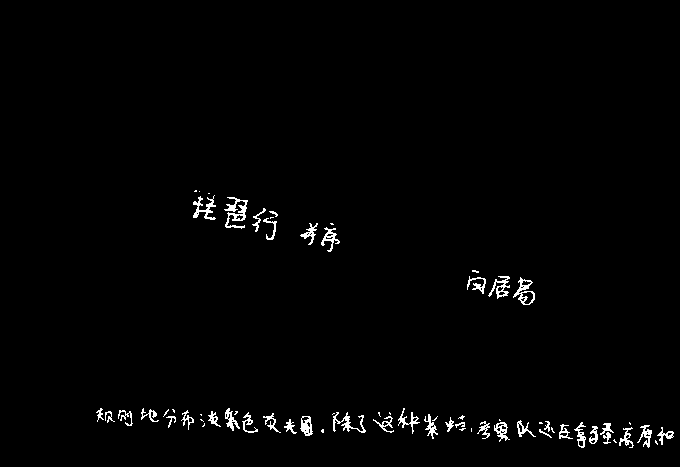 琵琶行 并序
白居易
规则地分布淡紫色荧光圈。除了这种紫蛙,考察队还在拿骚高原和